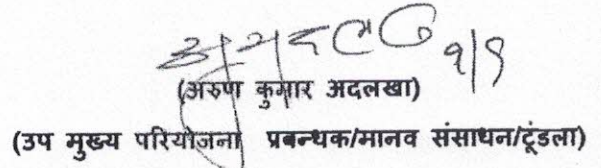 १/९
(अरुण कुमार अदलखा)
(उप मुख्य परियोजना प्रबन्धक/मानव संसाधन/टूंडला)